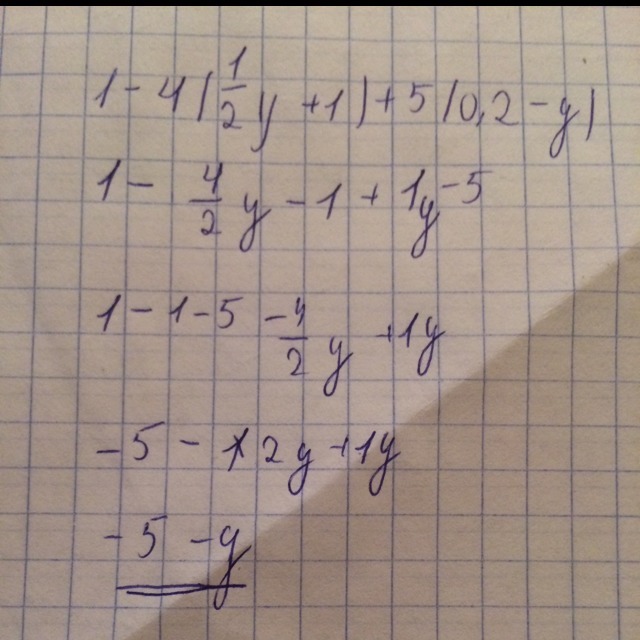 1 - 4(1/2 y + 1) + 5(0,2 - y)
1 - 4/2 y - 1 + 1y - 5
1 - 1 - 5 - 4/2 y + 1y
-5 - 2y + 1y
-5 - y